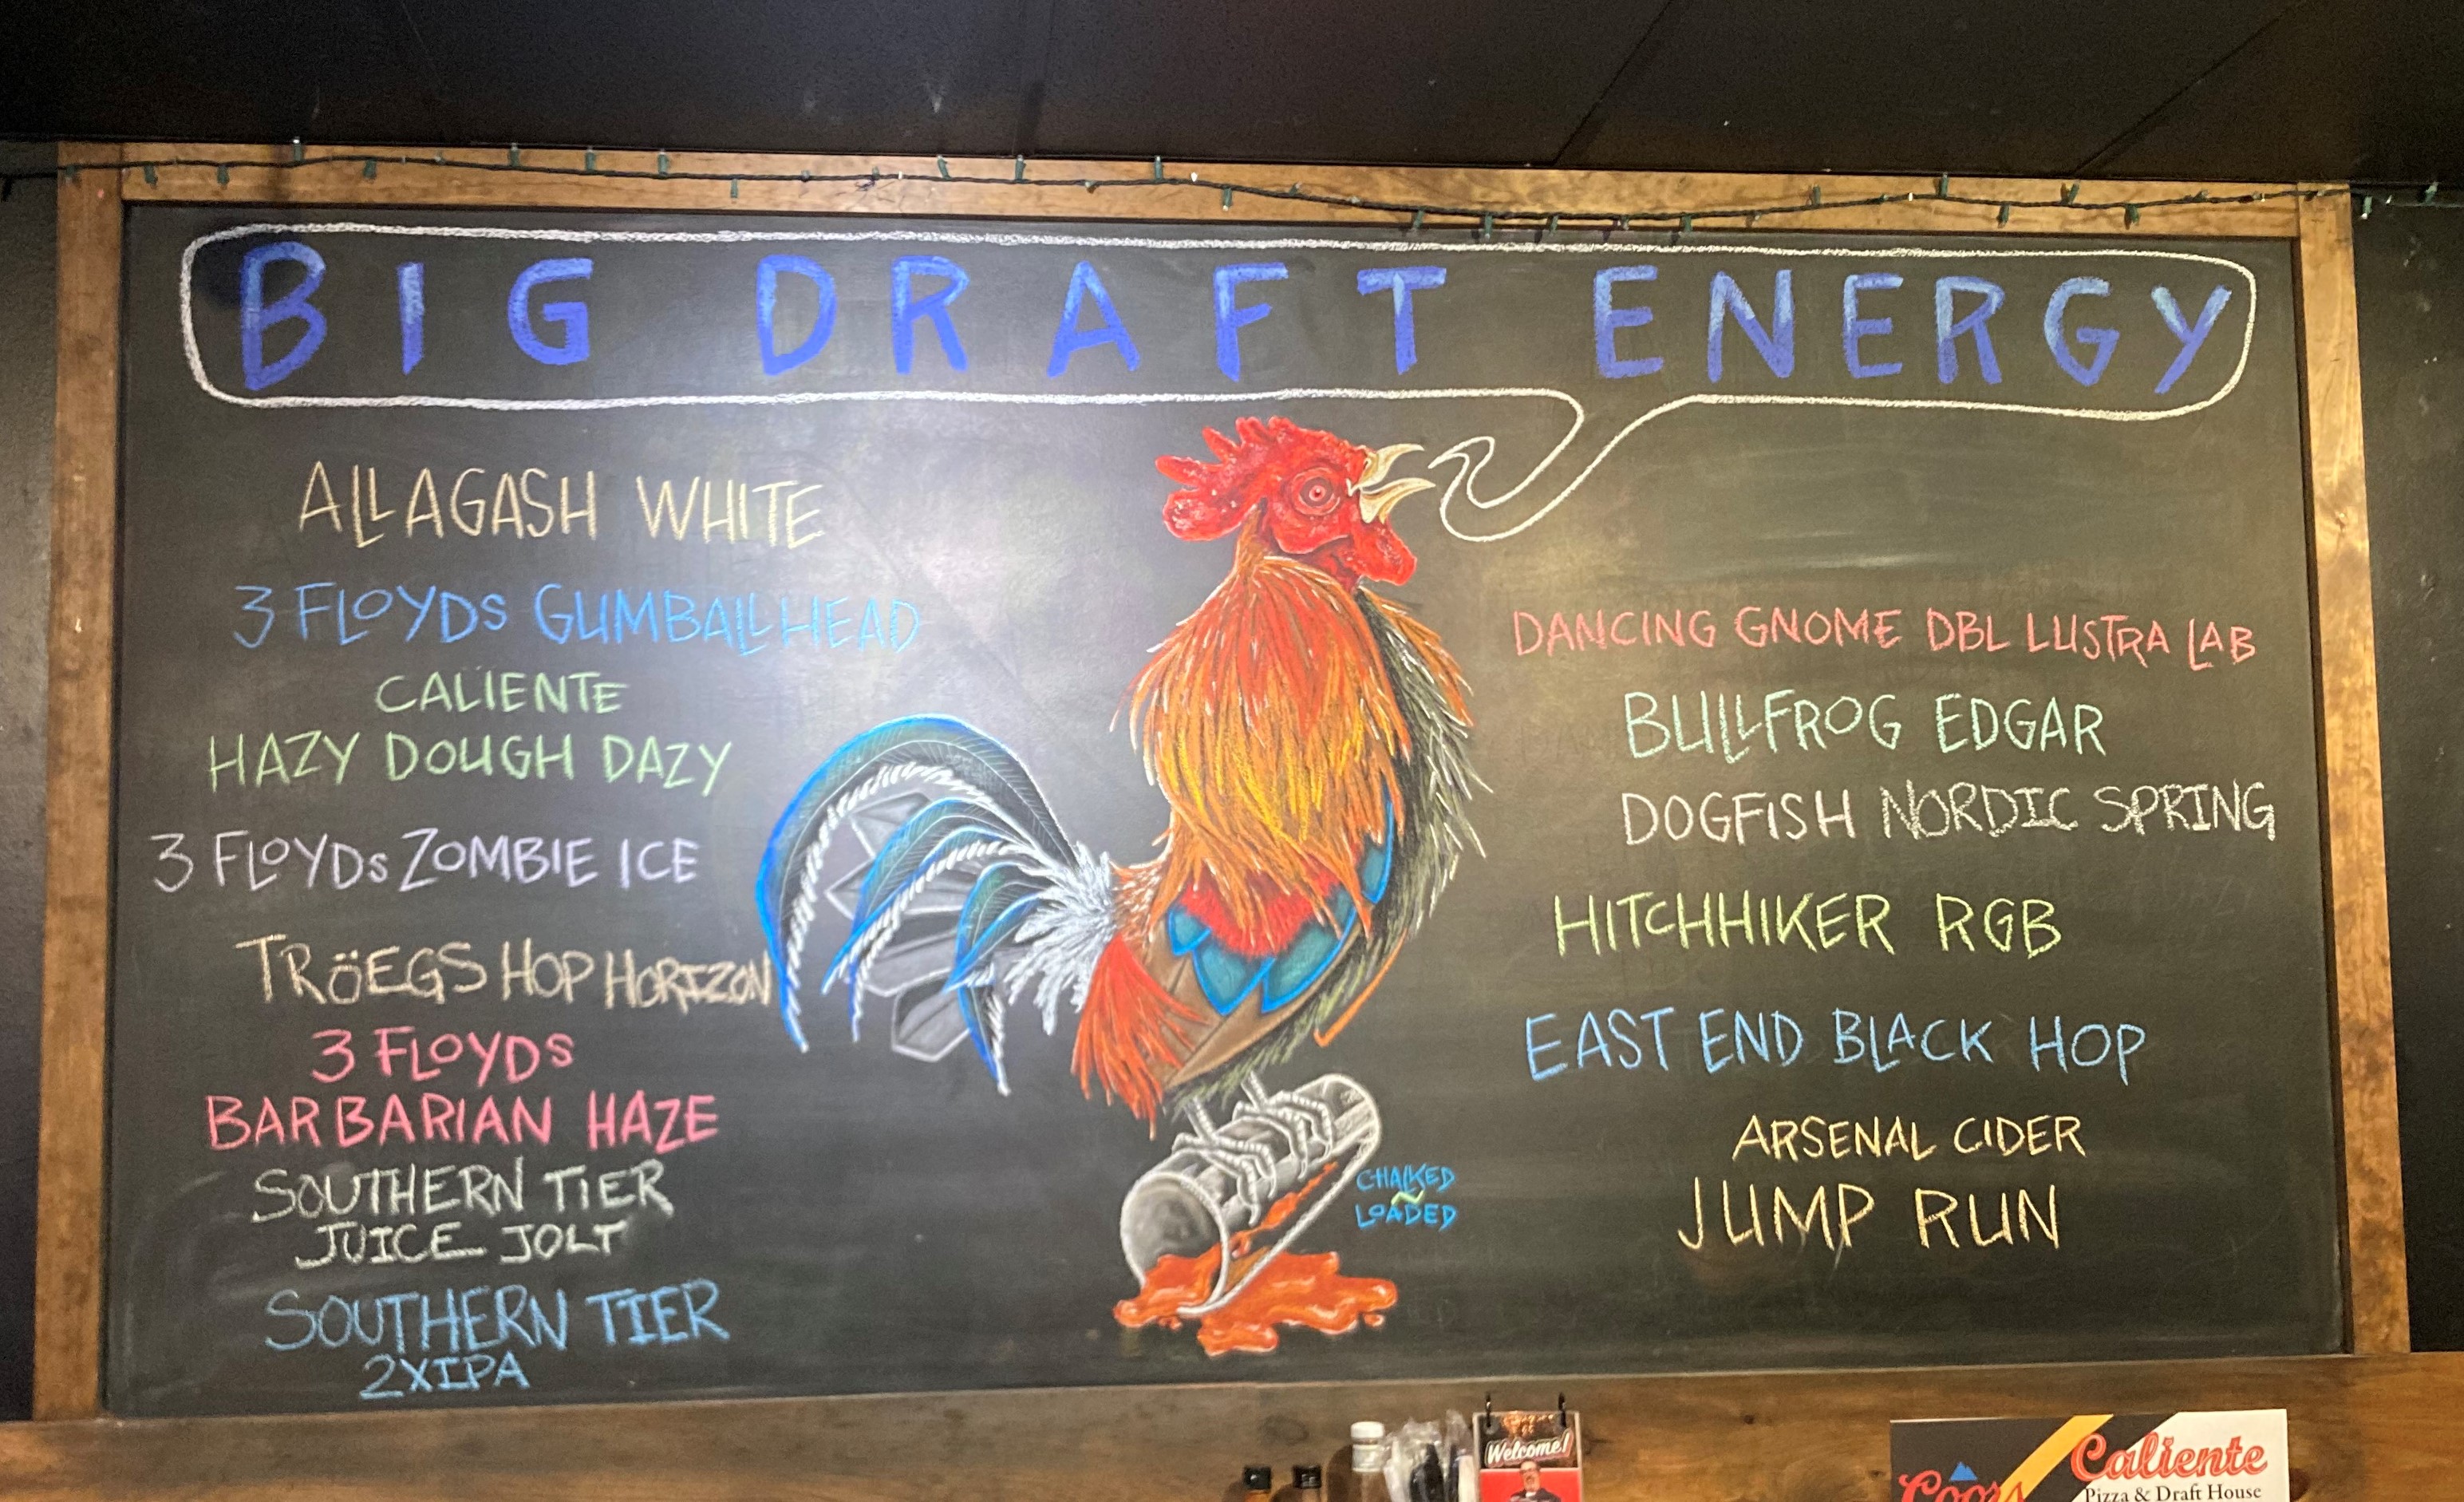 BIG DRAFT ENERGY
ALLAGASH WHITE
3 FLOYDS GUMBALLHEAD
CALIENTE
HAZY DOUGH DAZY
3 FLOYDS ZOMBIE ICE
TRÖEGS HOP HORIZON
3 FLOYDS
BARBARIAN HAZE
SOUTHERN TIER
JUICE JOLT
SOUTHERN TIER
2XIPA
DANCING GNOME DBL LUSTRA LAB
BULLFROG EDGAR
DOGFISH NORDIC SPRING
HITCHHIKER RGB
EAST END BLACK HOP
ARSENAL CIDER
JUMP RUN
CHALKED
~
LOADED
Welcome!
Coors
Caliente
Pizza & Draft House